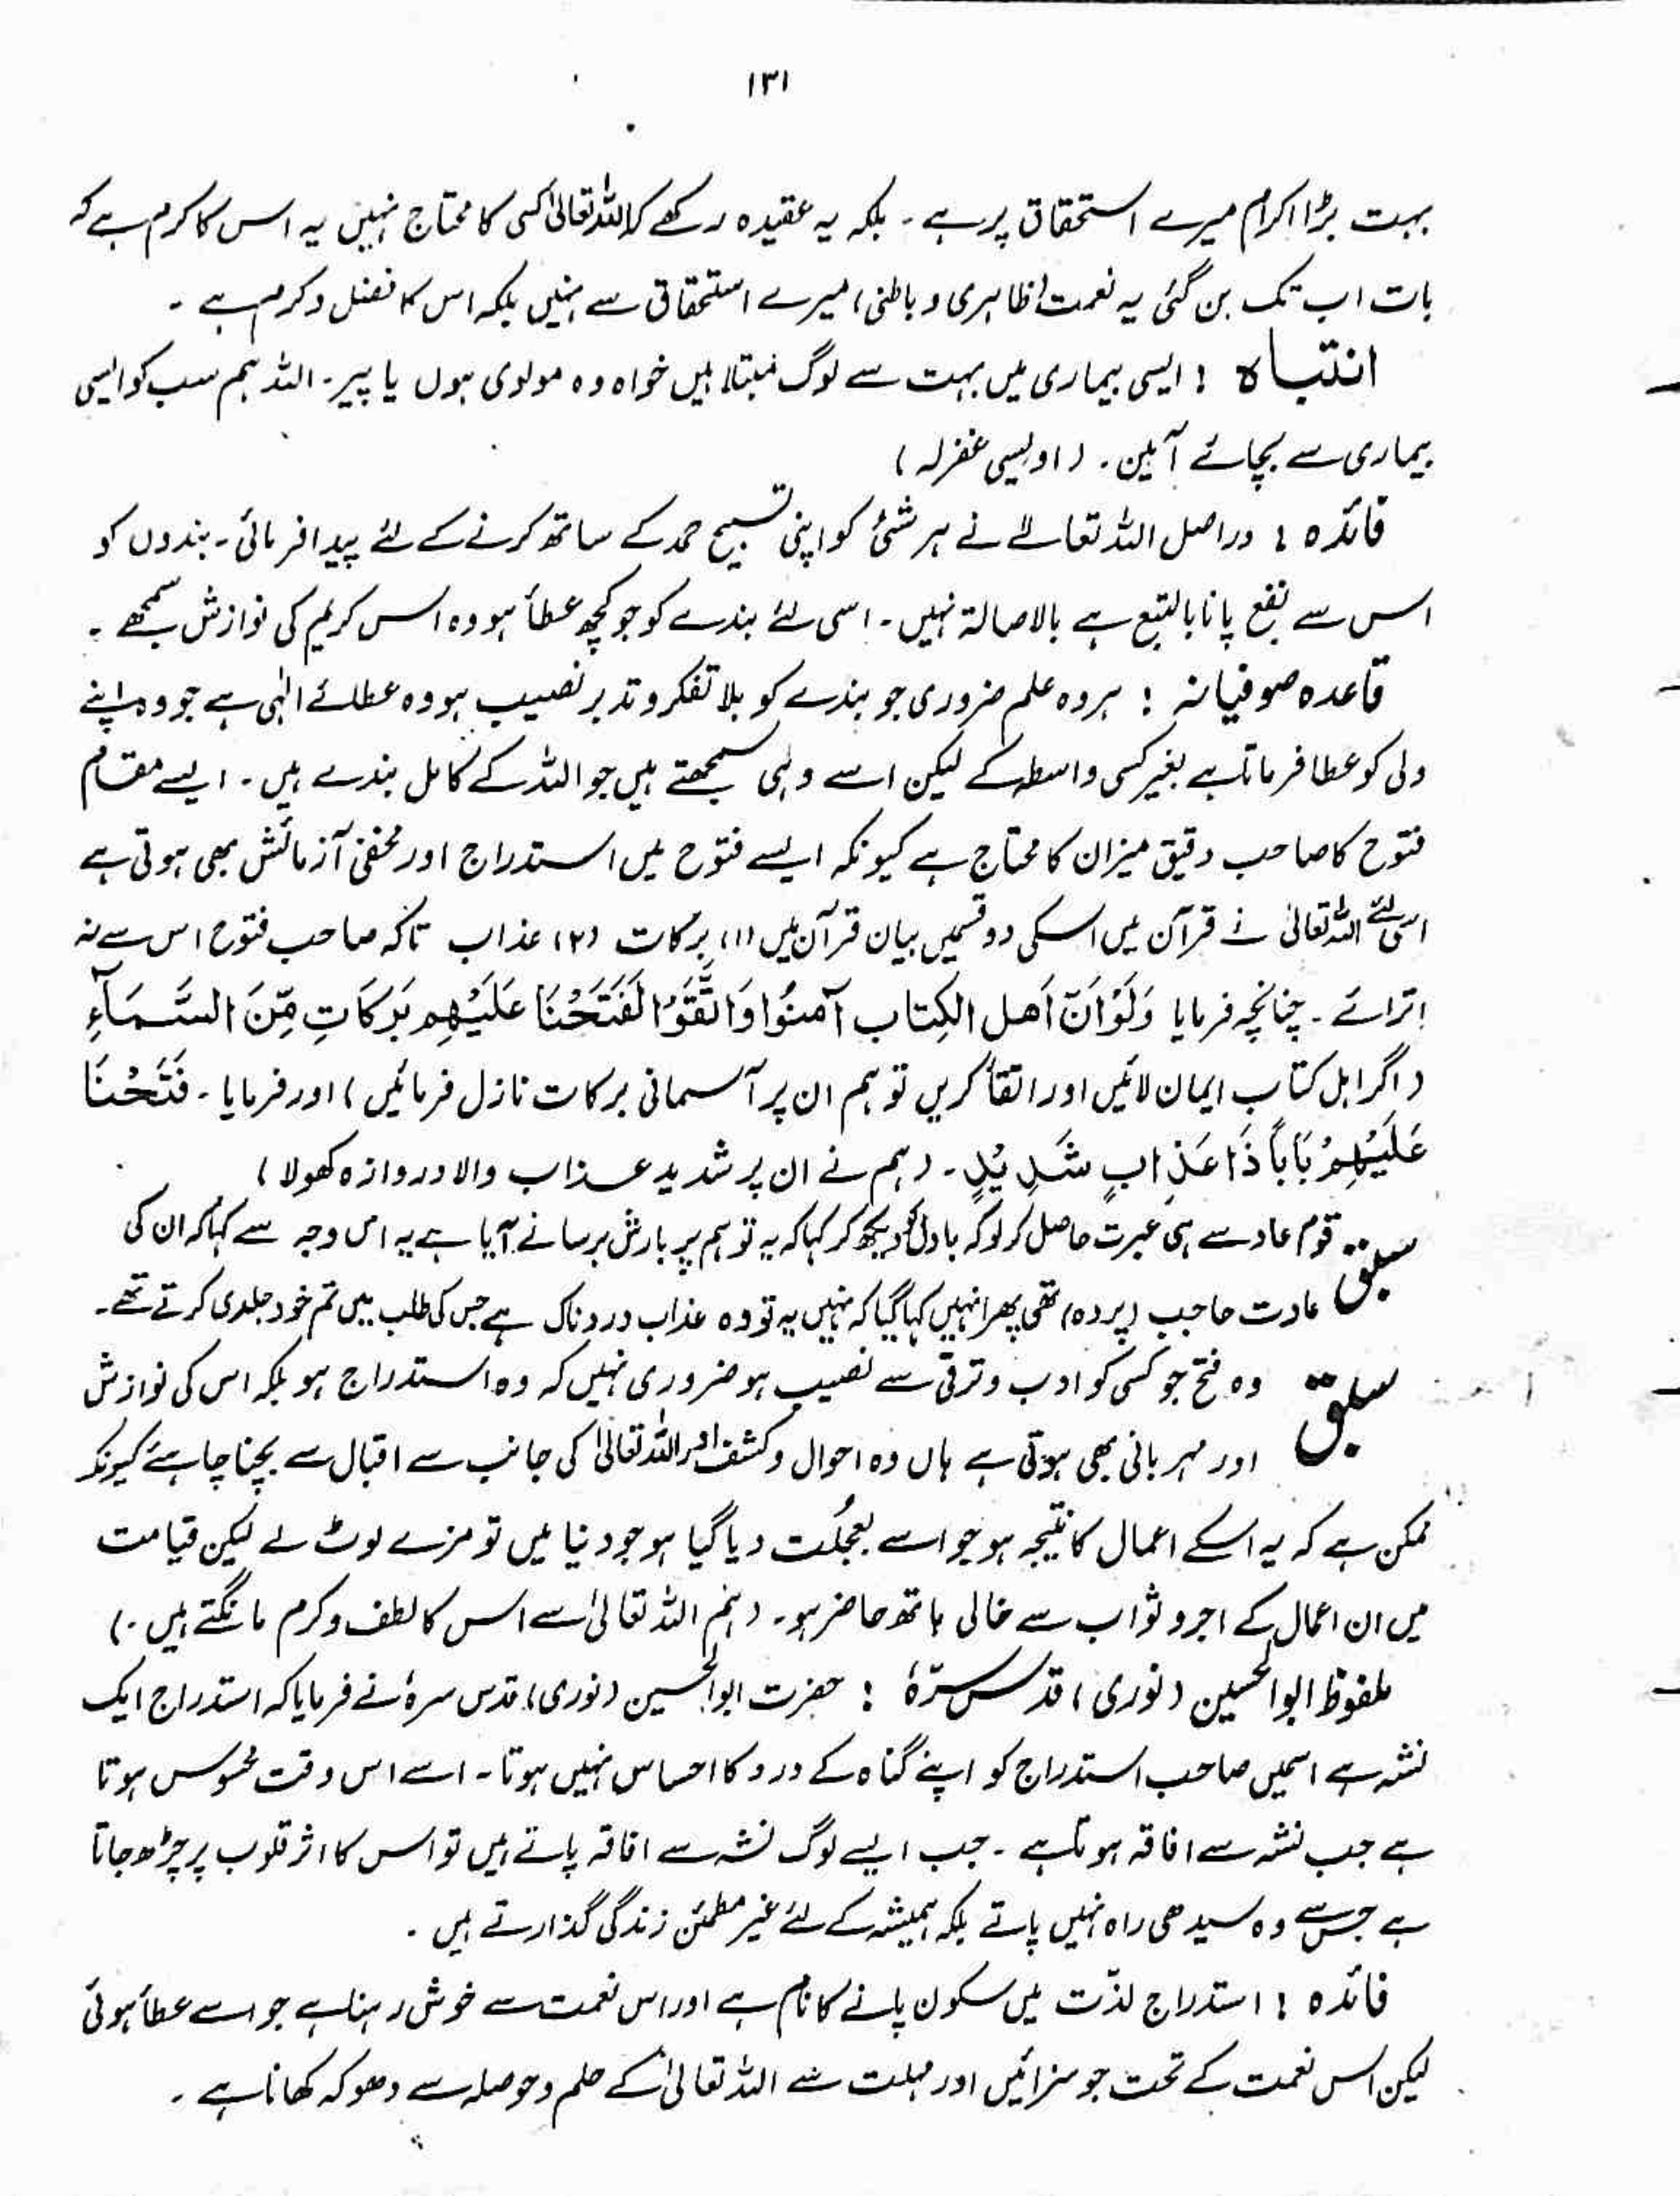 ۱۳۱
بہت بڑا اکرام میرے استحقاق پر ہے ۔ بلکہ یہ عقیدہ رکھے کہ اللہ تعالیٰ کسی کا محتاج نہیں یہ اس کا کرم ہے کہ
بات اب تک بن گئی یہ نعمت (ظاہری و باطنی) میرے استحقاق سے نہیں بلکہ اس کا فضل و کرم ہے ۔
انتباہ : ایسی بیماری میں بہت سے لوگ مبتلا ہیں خواہ وہ مولوی ہوں یا پیر ۔ اللہ ہم سب کو ایسی
بیماری سے بچائے آمین ۔ (اویسی غفرلہ)
فائدہ : دراصل اللہ تعالےٰ نے ہر شئ کو اپنی تسبیح حمد کے ساتھ کرنے کے لئے پیدا فرمائی ۔ بندوں کو
اس سے نفع پانا بالتبع ہے بالاصالۃ نہیں ۔ اسی لئے بندے کو جو کچھ عطأ ہو وہ اس کریم کی نوازش سمجھے ۔
قاعدہ صوفیانہ : ہر وہ علم ضروری جو بندے کو بلا تفکر و تدبر نصیب ہو وہ عطائے الٰہی ہے جو وہ اپنے
ولی کو عطا فرماتا ہے بغیر کسی واسطہ کے لیکن اسے وہی سمجھتے ہیں جو اللہ کے کامل بندے ہیں ۔ ایسے مقام
فتوح کا صاحب دقیق میزان کا محتاج ہے کیونکہ ایسے فتوح میں استدراج اور مخفی آزمائش بھی ہوتی ہے
اسی لئے اللہ تعالیٰ نے قرآن میں اسکی دو قسمیں بیان قرآن میں (۱) برکات (۲) عذاب تاکہ صاحب فتوح اس سے نہ
اترائے ۔ چنانچہ فرمایا وَلَوْ اَنَّ اَھل الکِتاب آمنُوا وَاتَّقَوْا لَفَتَحْنَا عَلَیْھِم بَرَکَاتِ مِّنَ السَّمَآءِ
(اگر اہل کتاب ایمان لائیں اور اتقأ کریں تو ہم ان پر آسمانی برکات نازل فرمائیں) اور فرمایا ۔ فَتَحْنَا
عَلَیْھِمْ بَاباً ذَا عَذَابٍ شَدِیْدٍ ۔ (ہم نے ان پر شدید عذاب والا دروازہ کھولا)
سبق قوم عاد سے ہی عبرت حاصل کر لو کہ بادل کو دیکھ کر کہا کہ یہ تو ہم پر بارش برسانے آیا ہے یہ اس وجہ سے کہا کہ ان کی
عادت حاجب (پردہ) تھی پھر انہیں کہا گیا کہ نہیں یہ تو وہ عذاب دردناک ہے جس کی طلب میں تم خود جلدی کرتے تھے ۔
سبق وہ فتح جو کسی کو ادب و ترقی سے نصیب ہو ضروری نہیں کہ وہ استدراج ہو بلکہ اس کی نوازش
اور مہربانی بھی ہوتی ہے ہاں وہ احوال و کشف اور اللہ تعالیٰ کی جانب سے اقبال سے بچنا چاہئے کیونکہ
ممکن ہے کہ یہ اسکے اعمال کا نتیجہ ہو جو اسے بعجلت دیا گیا ہو جو دنیا میں تو مزے لوٹ لے لیکن قیامت
میں ان اعمال کے اجر و ثواب سے خالی ہاتھ حاضر ہو ۔ (ہم اللہ تعالیٰ سے اس کا لطف و کرم مانگتے ہیں ۔)
ملفوظ ابوالحسین (نوری) قدس سرّہٗ : حضرت ابوالحسین (نوری) قدس سرہٗ نے فرمایا کہ استدراج ایک
نشہ ہے اسمیں صاحب استدراج کو اپنے گناہ کے درد کا احساس نہیں ہوتا ۔ اسے اس وقت محسوس ہوتا
ہے جب نشہ سے افاقہ ہوتا ہے ۔ جب ایسے لوگ نشہ سے افاقہ پاتے ہیں تو اس کا اثر قلوب پر چڑھ جاتا
ہے جس سے وہ سیدھی راہ نہیں پاتے بلکہ ہمیشہ کے لئے غیر مطمئن زندگی گذارتے ہیں ۔
فائدہ : استدراج لذّت میں سکون پانے کا نام ہے اور اس نعمت سے خوش رہنا ہے جو اسے عطأ ہوئی
لیکن اس نعمت کے تحت جو سزائیں اور مہلت سے اللہ تعالیٰ کے حلم و حوصلہ سے دھوکہ کھانا ہے ۔